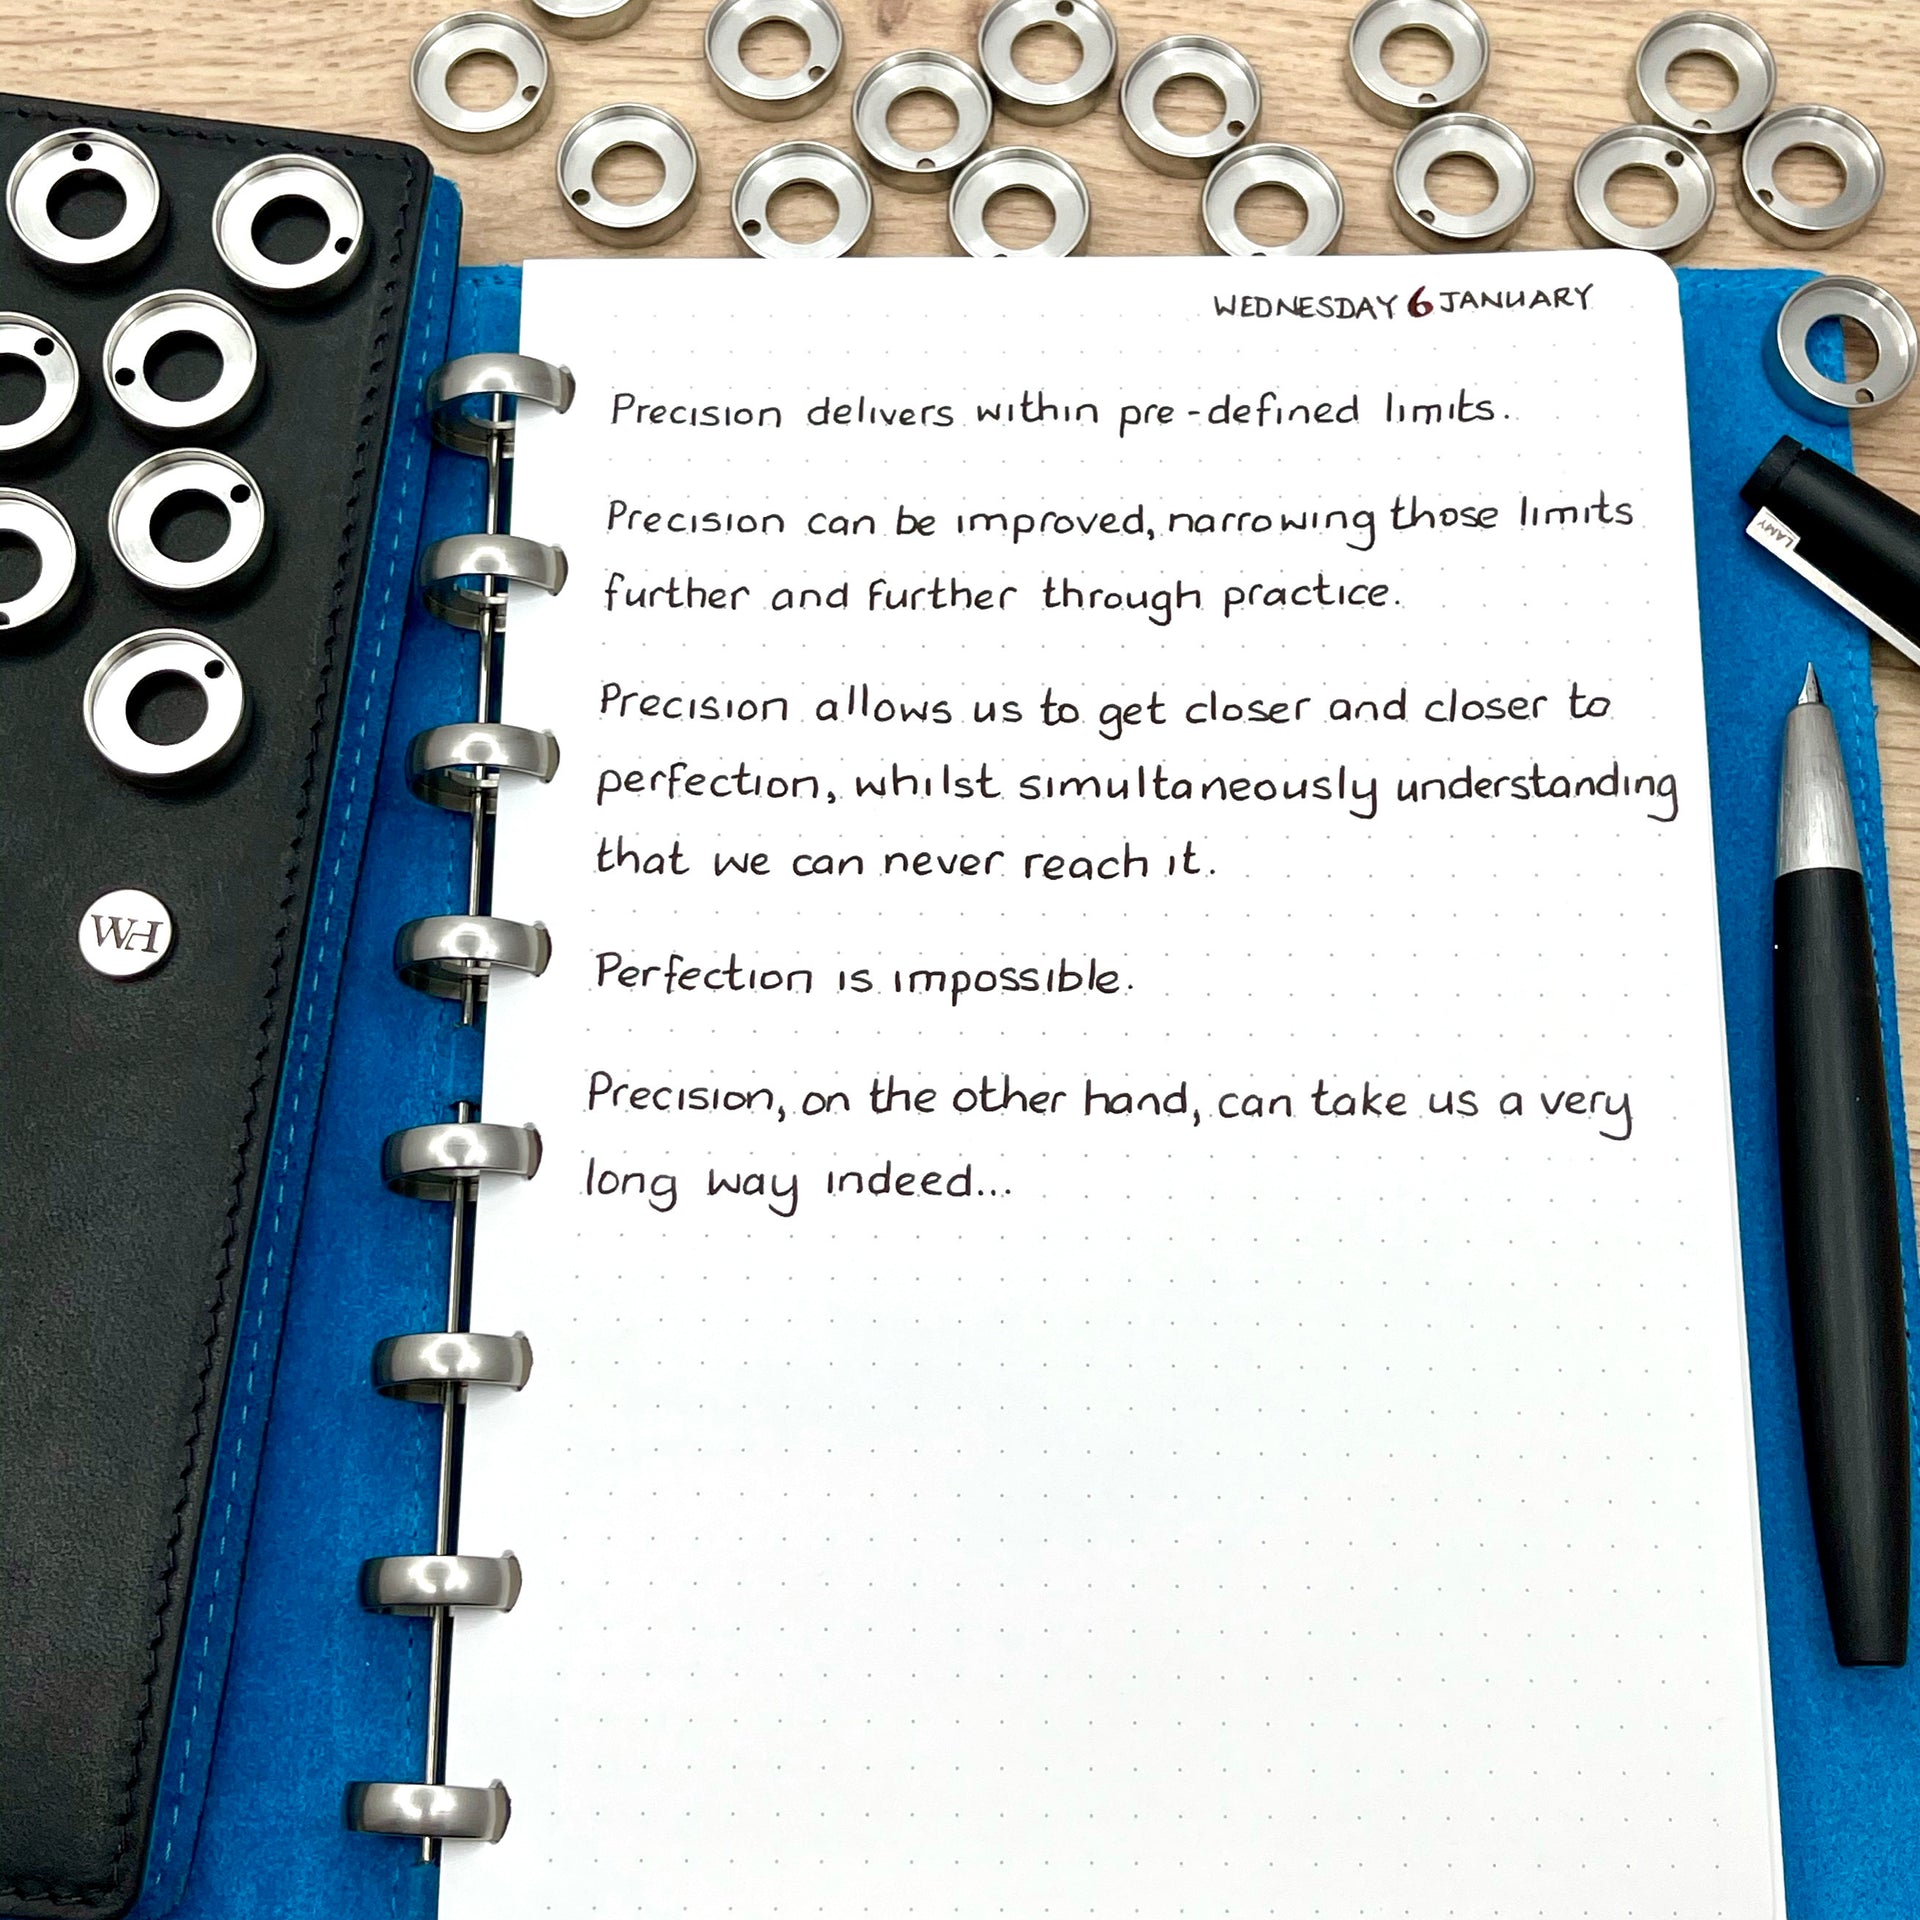 WEDNESDAY 6 JANUARY
Precision delivers within pre-defined limits.
Precision can be improved, narrowing those limits
further and further through practice.
Precision allows us to get closer and closer to
perfection, whilst simultaneously understanding
that we can never reach it.
Perfection is impossible.
Precision, on the other hand, can take us a very
long way indeed...
LAMY
WH